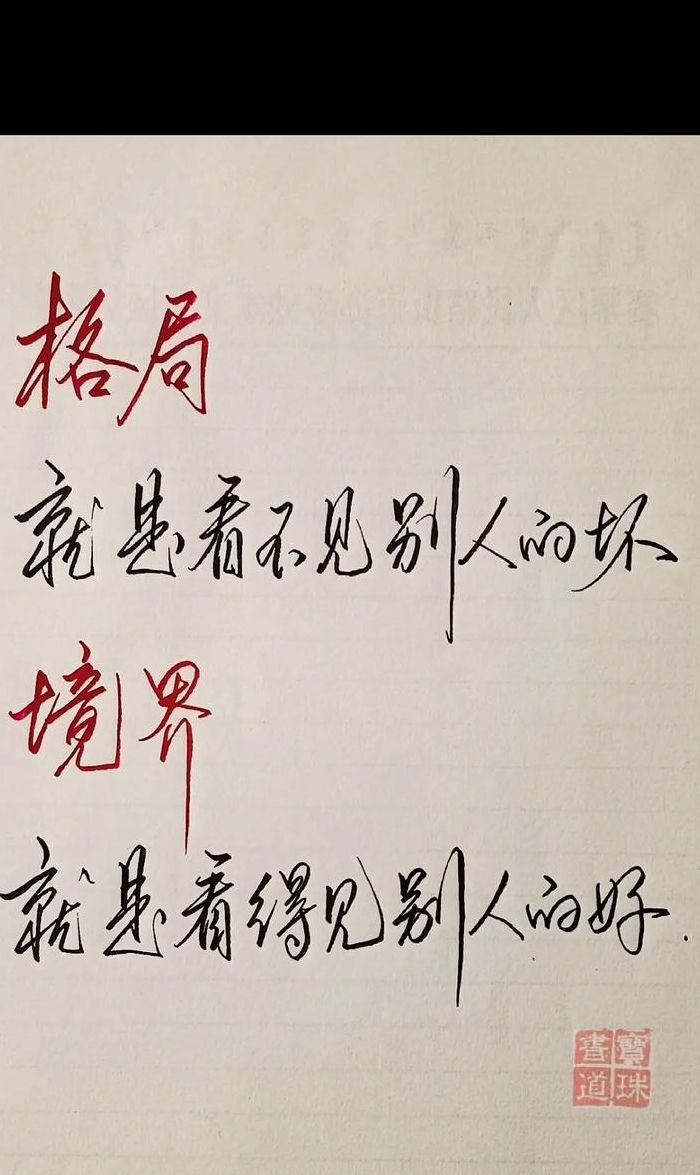 格局
就是看不见别人的坏
境界
就是看得见别人的好.
寶珠
書道